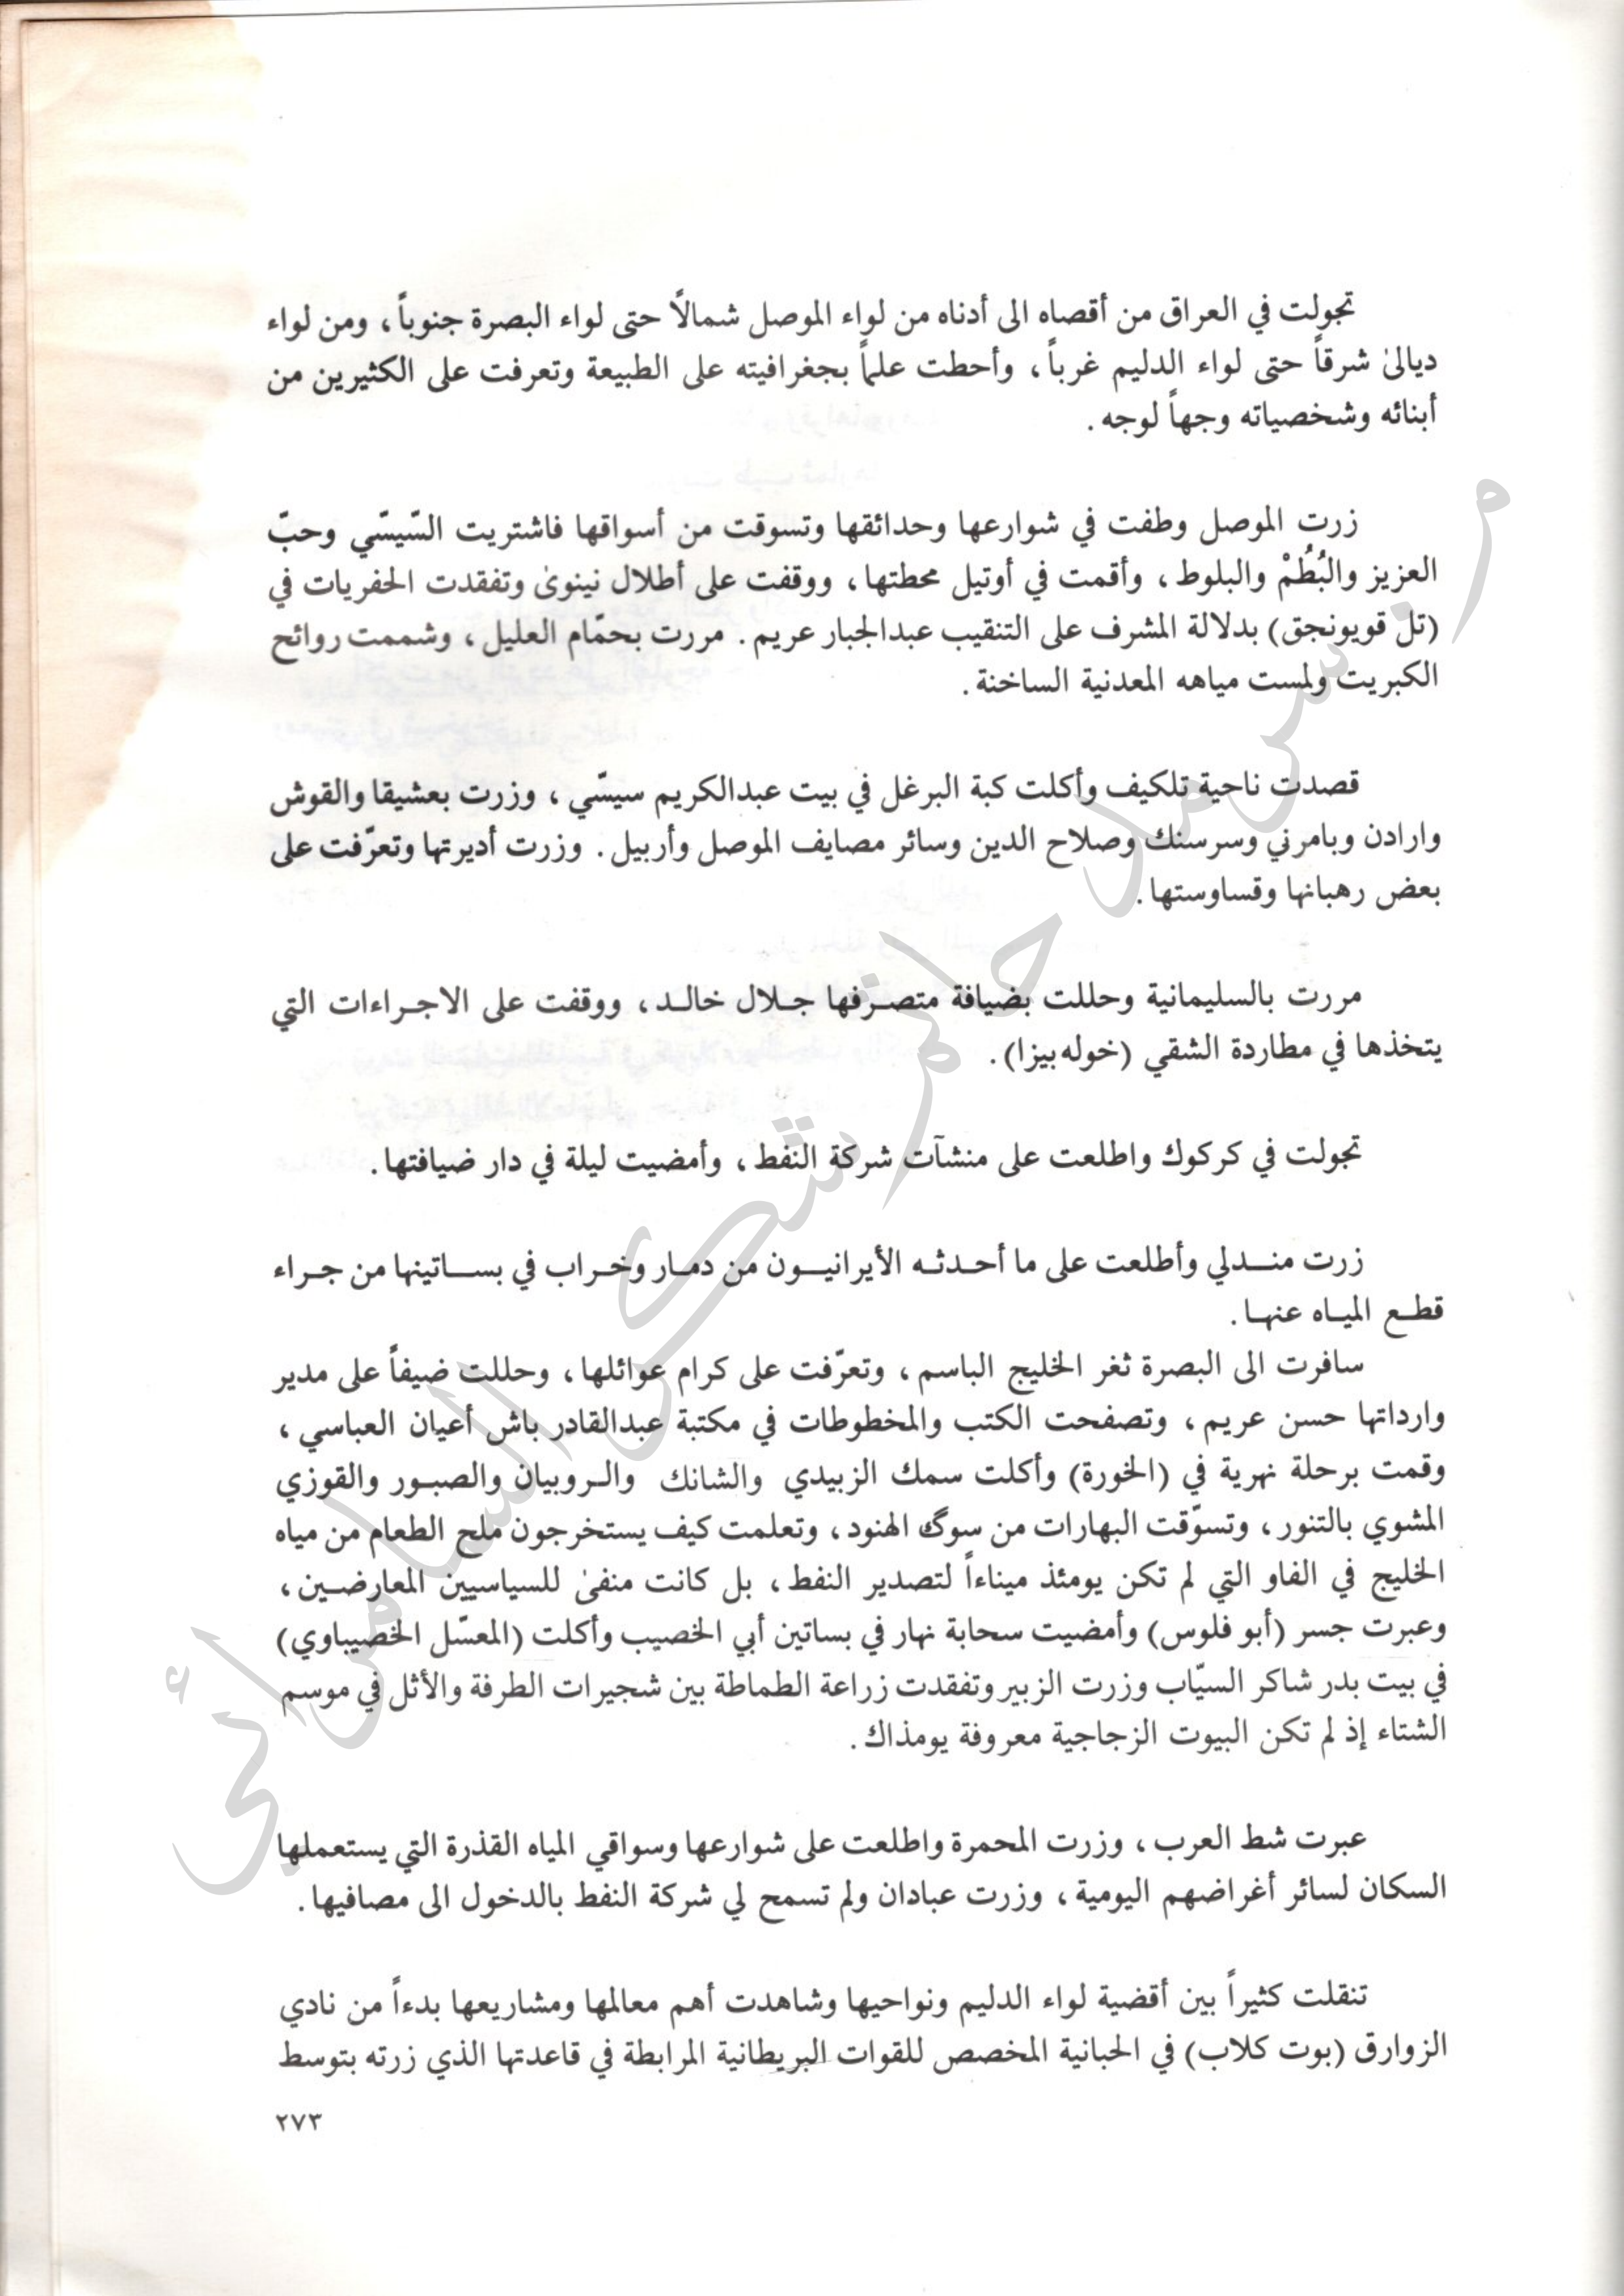 تجولت في العراق من أقصاه الى أدناه من لواء الموصل شمالًا حتى لواء البصرة جنوباً ، ومن لواء
ديالىٰ شرقاً حتى لواء الدليم غرباً ، وأحطت علماً بجغرافيته على الطبيعة وتعرفت على الكثيرين من
أبنائه وشخصياته وجهاً لوجه .
زرت الموصل وطفت في شوارعها وحدائقها وتسوقت من أسواقها فاشتريت السّيسّي وحبّ
العزيز والبُطُمْ والبلوط ، وأقمت في أوتيل محطتها ، ووقفت على أطلال نينوىٰ وتفقدت الحفريات في
(تل قويونجق) بدلالة المشرف على التنقيب عبدالجبار عريم . مررت بحمّام العليل ، وشممت روائح
الكبريت ولمست مياهه المعدنية الساخنة .
قصدت ناحية تلكيف وأكلت كبة البرغل في بيت عبدالكريم سيسّي ، وزرت بعشيقا والقوش
وارادن وبامرني وسرسنك وصلاح الدين وسائر مصايف الموصل وأربيل . وزرت أديرتها وتعرّفت على
بعض رهبانها وقساوستها .
مررت بالسليمانية وحللت بضيافة متصـرفها جـلال خالـد ، ووقفت على الاجـراءات التي
يتخذها في مطاردة الشقي (خوله بيزا) .
تجولت في كركوك واطلعت على منشآت شركة النفط ، وأمضيت ليلة في دار ضيافتها .
زرت منـدلي وأطلعت على ما أحـدثـه الأيرانيـون من دمـار وخـراب في بسـاتينها من جـراء
قطـع الميـاه عنهـا .
سافرت الى البصرة ثغر الخليج الباسم ، وتعرّفت على كرام عوائلها ، وحللت ضيفاً على مدير
وارداتها حسن عريم ، وتصفحت الكتب والمخطوطات في مكتبة عبدالقادر باش أعيان العباسي ،
وقمت برحلة نهرية في (الخورة) وأكلت سمك الزبيدي والشانك والـروبيان والصبـور والقوزي
المشوي بالتنور ، وتسوّقت البهارات من سوگ الهنود ، وتعلمت كيف يستخرجون ملح الطعام من مياه
الخليج في الفاو التي لم تكن يومئذ ميناءاً لتصدير النفط ، بل كانت منفىٰ للسياسيين المعارضـين ،
وعبرت جسر (أبو فلوس) وأمضيت سحابة نهار في بساتين أبي الخصيب وأكلت (المعسّل الخصيباوي)
في بيت بدر شاكر السيّاب وزرت الزبير وتفقدت زراعة الطماطة بين شجيرات الطرفة والأثل في موسم
الشتاء إذ لم تكن البيوت الزجاجية معروفة يومذاك .
عبرت شط العرب ، وزرت المحمرة واطلعت على شوارعها وسواقي المياه القذرة التي يستعملها
السكان لسائر أغراضهم اليومية ، وزرت عبادان ولم تسمح لي شركة النفط بالدخول الى مصافيها .
تنقلت كثيراً بين أقضية لواء الدليم ونواحيها وشاهدت أهم معالمها ومشاريعها بدءاً من نادي
الزوارق (بوت كلاب) في الحبانية المخصص للقوات البريطانية المرابطة في قاعدتها الذي زرته بتوسط
٢٧٣